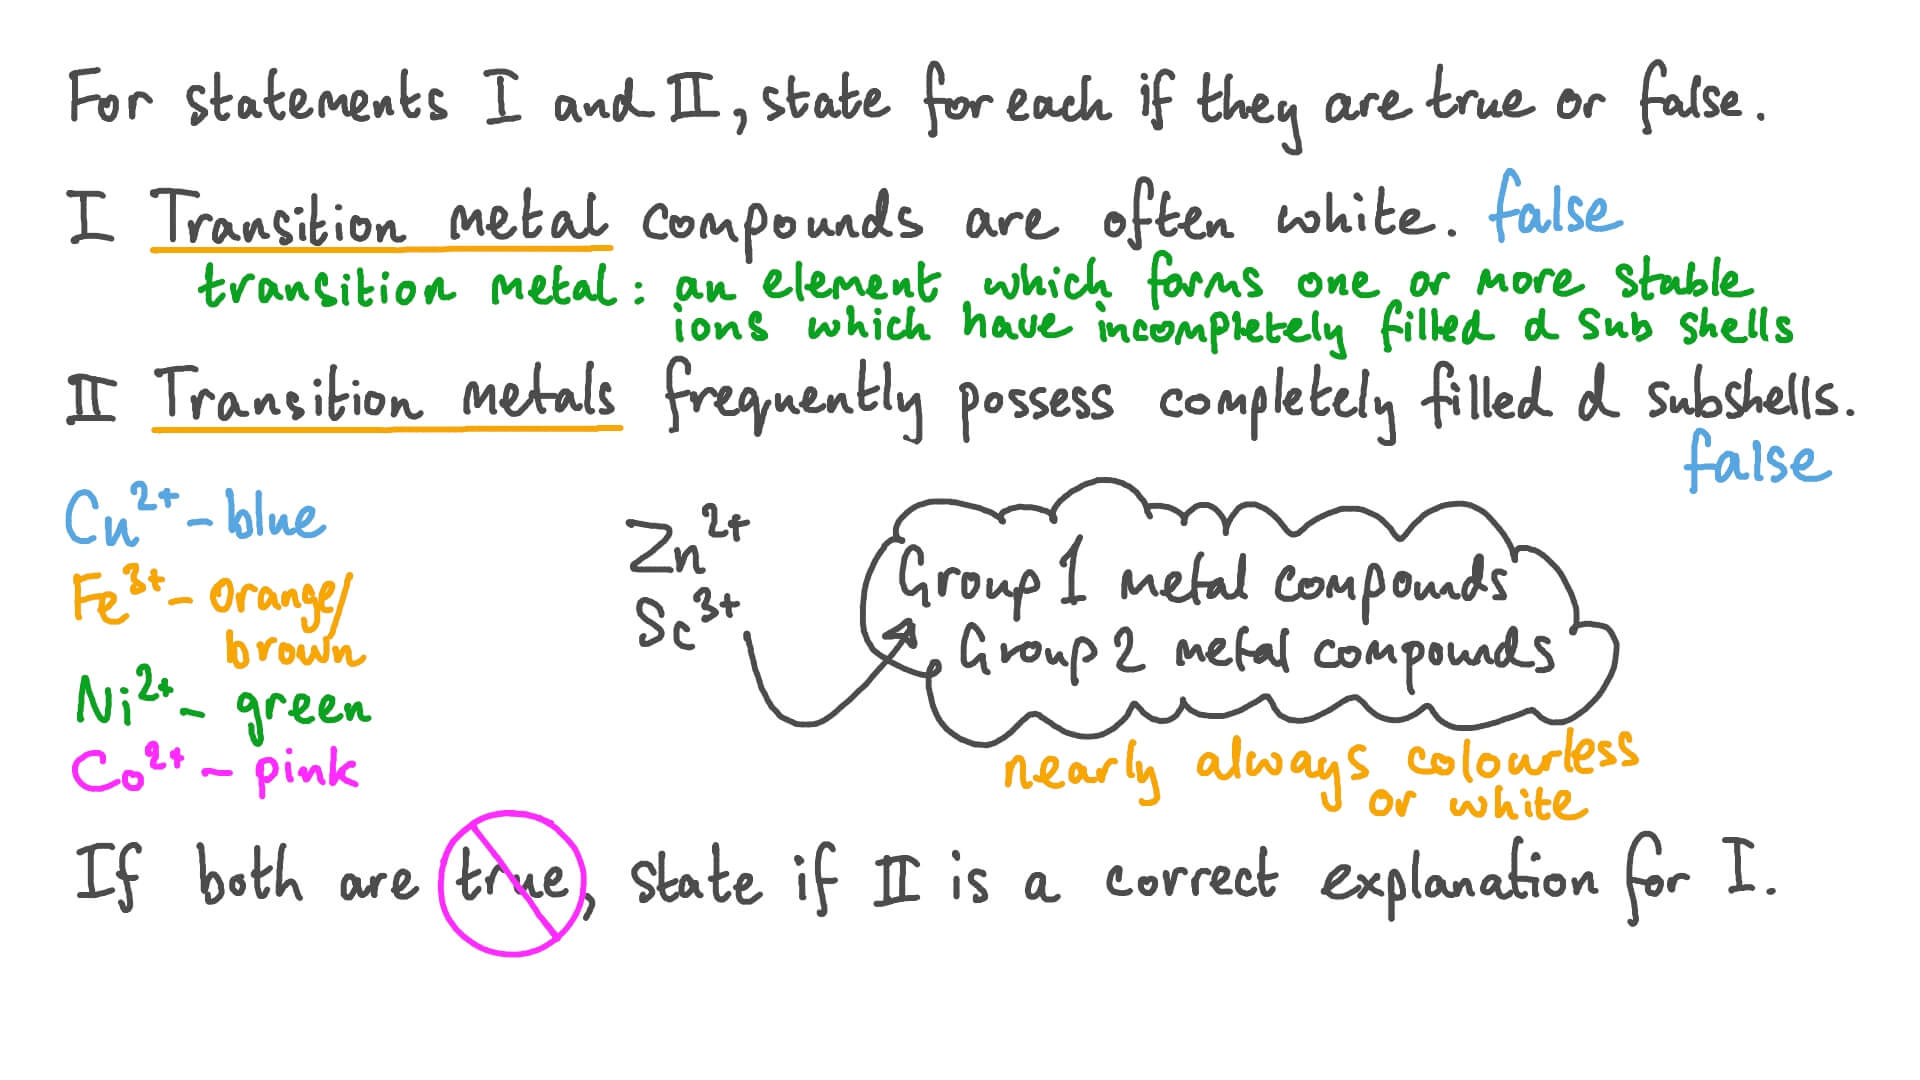 For statements I and II, state for each if they are true or false.
I Transition metal compounds are often white. false
transition metal: an element which forms one or more stable
ions which have incompletely filled d sub shells
II Transition metals frequently possess completely filled d subshells.
false
Cu²⁺ - blue
Fe³⁺ - orange/
brown
Ni²⁺ - green
Co²⁺ - pink
Zn²⁺
Sc³⁺
Group 1 metal compounds
Group 2 metal compounds
nearly always colourless
or white
If both are true, state if II is a correct explanation for I.